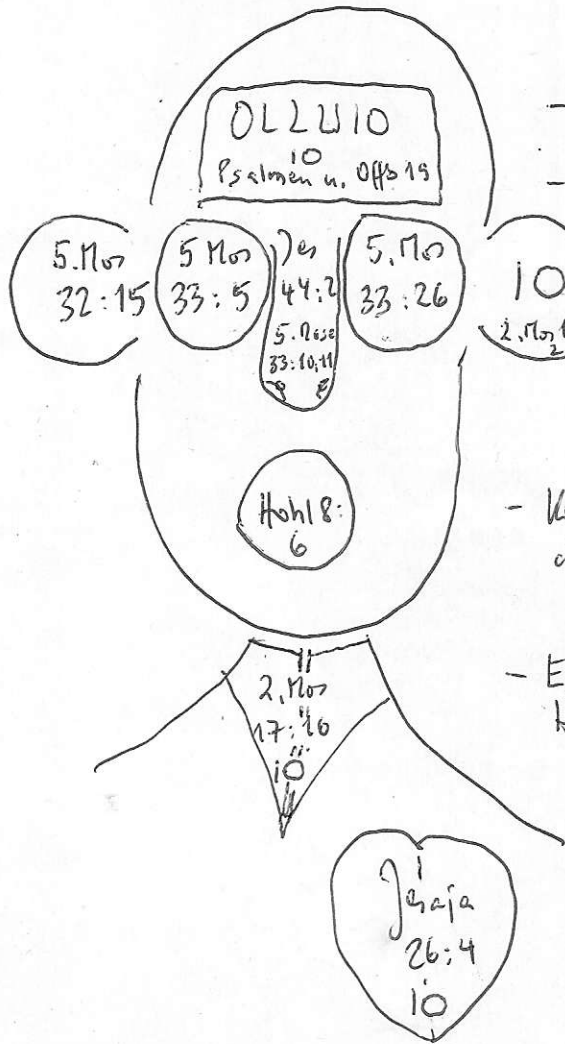 OLLWIO
io
Psalmen u. Offb 19
5.Mos
32:15
5 Mos
33:5
Jes
44:2
5.Mose
33:10,11
5.Mos
33:26
IO
2.Mos
2
Hohl 8:
6
2.Mos
17:16
iO
Jesaja
26:4
iO
-
-
- K
- E